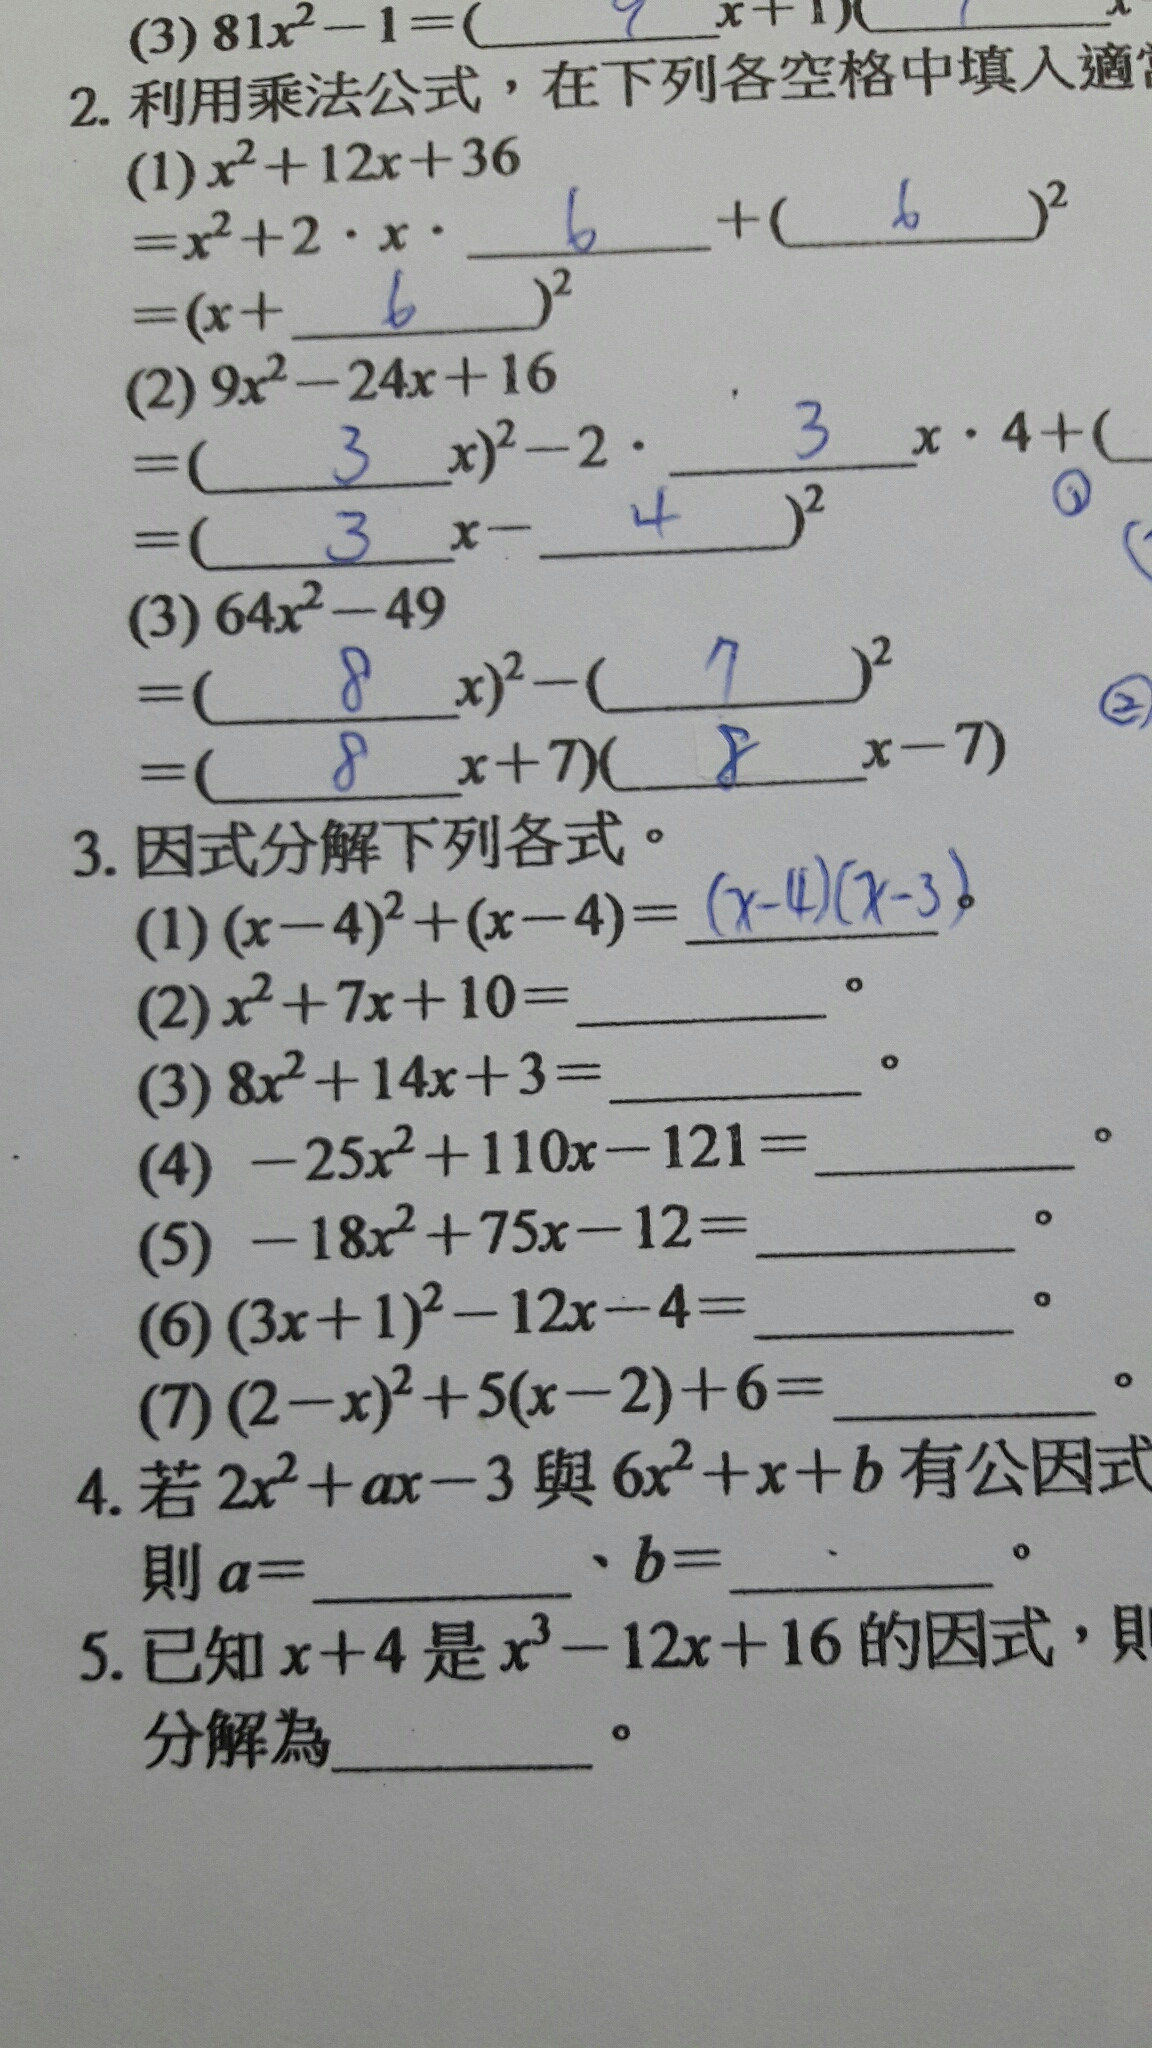 (3) 81x²－1＝( 9 x＋1)( x
2. 利用乘法公式，在下列各空格中填入適
(1) x²＋12x＋36
＝x²＋2・x・ 6 ＋( 6 )²
＝(x＋ 6 )²
(2) 9x²－24x＋16
＝( 3 x)²－2・ 3 x・4＋(
＝( 3 x－ 4 )²
①
(3) 64x²－49
＝( 8 x)²－( 7 )²
②
＝( 8 x＋7)( 8 x－7)
3. 因式分解下列各式。
(1) (x－4)²＋(x－4)＝ (x-4)(x-3)。
(2) x²＋7x＋10＝______。
(3) 8x²＋14x＋3＝______。
(4) －25x²＋110x－121＝______。
(5) －18x²＋75x－12＝______。
(6) (3x＋1)²－12x－4＝______。
(7) (2－x)²＋5(x－2)＋6＝______。
4. 若 2x²＋ax－3 與 6x²＋x＋b 有公因式
則 a＝______、b＝______。
5. 已知 x＋4 是 x³－12x＋16 的因式，則
分解為______。